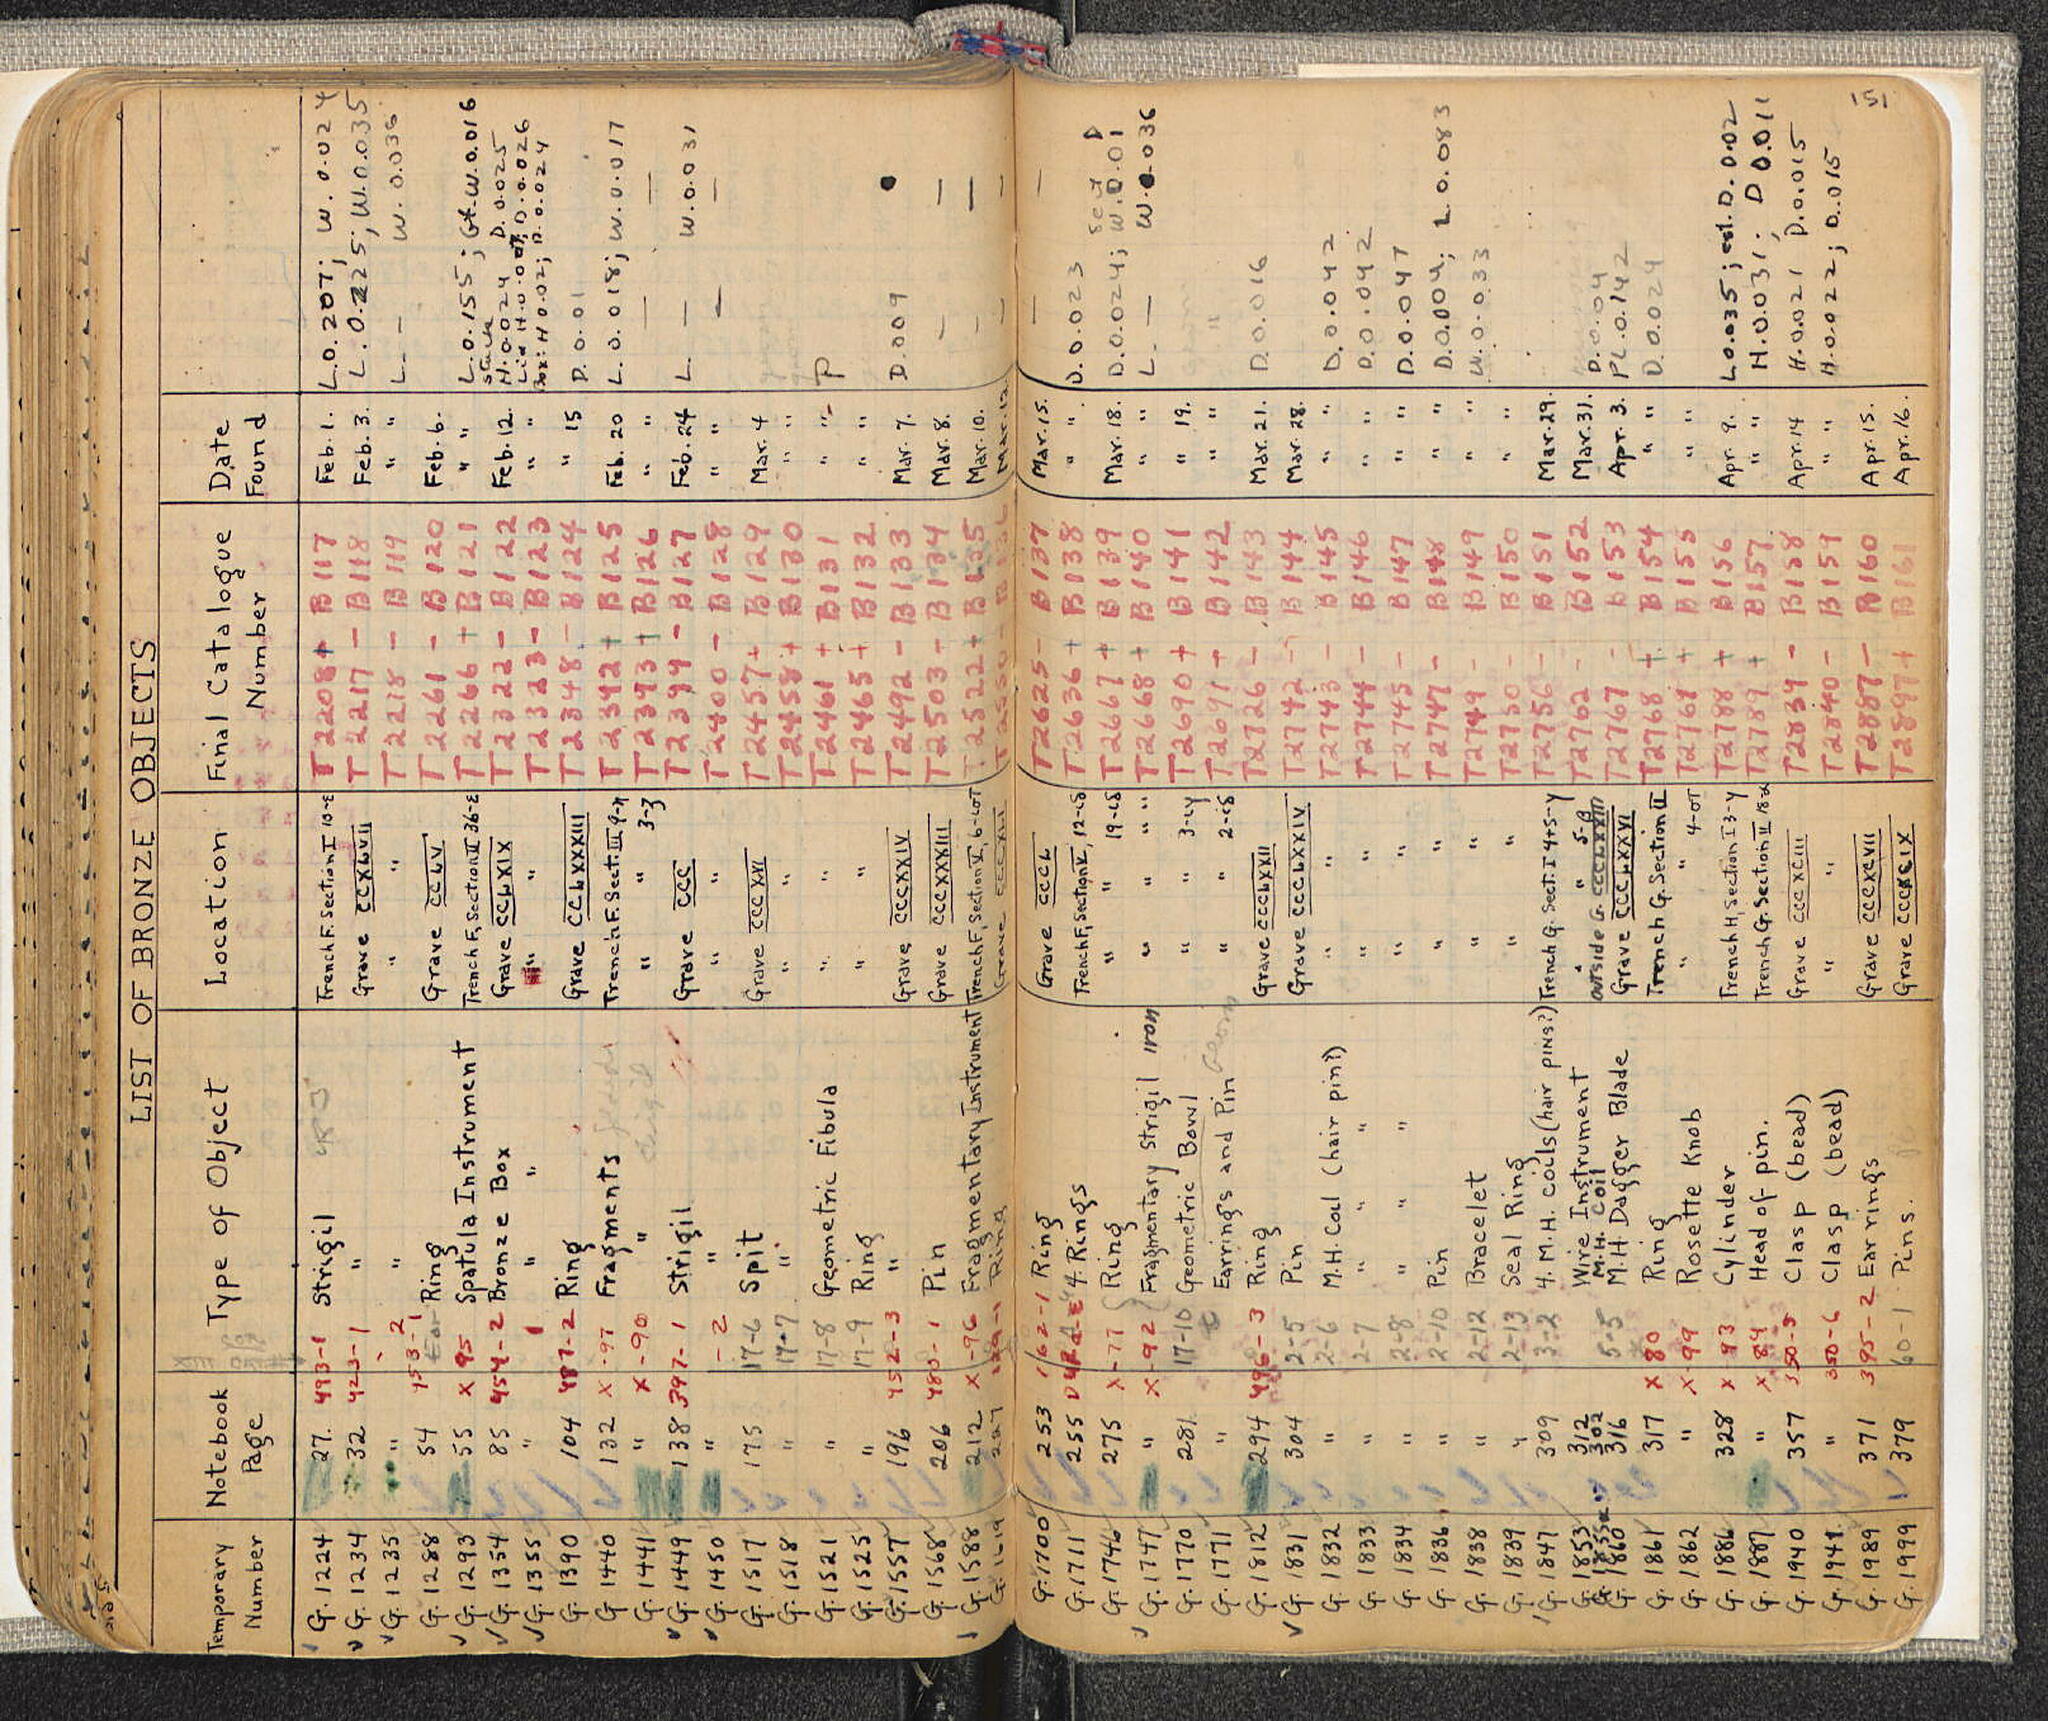 LIST OF BRONZE OBJECTS
Temporary Number | Notebook Page | Type of Object | Location | Final Catalogue Number | Date Found
G. 1224 | 27. | 493-1 Strigil | Trench F. Section I 10-ε | T 2208 + B 117 | Feb. 1. | L 0.207; W. 0.024
G. 1234 | 32 | 423-1 " | Grave CCXLVII | T 2217 - B 118 | Feb. 3. | L. 0.225; W. 0.035
G. 1235 | " | 2 " | " " | T 2218 - B 119 | " " | L. - W. 0.036
G. 1288 | 54 | 453-1 Ring | Grave CCLV | T 2261 - B 120 | Feb. 6.
G. 1293 | 55 | X 95 Spatula Instrument | Trench F, Section II 36-ε | T 2266 + B 121 | " " | L. 0.155; Gt. W. 0.016
G. 1354 | 85 | 454-2 Bronze Box " | Grave CCLXIX | T 2322 - B 122 | Feb. 12. | H. 0.024 D. 0.025
G. 1355 | " | " " | " " | T 2323 - B 123 | " " | Box: H 0.02; D. 0.024
G. 1390 | 104 | 487-2 Ring | Grave CCLXXXIII | T 2348 - B 124 | " 15 | D. 0.01
G. 1440 | 132 | X-97 Fragments | Trench F. Sect. III 9-η | T 2392 + B 125 | Feb. 20 | L. 0.018; W. 0.017
G. 1441 | " | X-90 " | " " 3-ζ | T 2393 + B 126 | " " | - -
G. 1449 | 138 | 397-1 Strigil | Grave CCC | T 2399 - B 127 | Feb. 24 | L. - W. 0.031
G. 1450 | " | -2 " | " " | T 2400 - B 128 | " " | - -
G. 1517 | 175 | 17-6 Spit | Grave CCCXVI | T 2457 + B 129 | Mar. 4
G. 1518 | " | 17-7 " | " " | T 2458 + B 130 | " "
G. 1521 | " | 17-8 Geometric Fibula | " " | T 2461 + B 131 | " " | P
G. 1525 | " | 17-9 Ring | " " | T 2465 + B 132 | " "
G. 1557 | 196 | 452-3 " | Grave CCCXXIV | T 2492 - B 133 | Mar. 7. | D. 0.009
G. 1568 | 206 | 480-1 Pin | Grave CCCXXXIII | T 2503 + B 134 | Mar. 8. | - -
G. 1588 | 212 | X-96 Fragmentary Instrument | Trench F, Section V, 6-ιστ | T 2522 + B 135 | Mar. 10. | - -
G. 1619 | 227 | Ring | Grave CCCXLI | T 2550 - B 136 | Mar. 12. | - -
G. 1700 | 253 | 162-1 Ring | Grave CCCL | T 2625 - B 137 | Mar. 15. | - -
G. 1711 | 255 | 4. Rings | Trench F, Section V, 12-ιδ | T 2636 + B 138 | " " | D. 0.023
G. 1746 | 275 | X-77 Ring | " " 19-ιδ | T 2667 + B 139 | Mar. 18. | D. 0.024; W. 0.01
G. 1747 | " | X-92 Fragmentary Strigil iron | " " " " | T 2668 + B 140 | " " | L. - W. 0.036
G. 1770 | 281 | 17-10 Geometric Bowl | " " 3-ιγ | T 2690 + B 141 | " 19.
G. 1771 | " | Earrings and Pin Geom | " " 2-ιδ | T 2691 + B 142 | " "
G. 1812 | 294 | 496-3 Ring | Grave CCCLXII | T 2726 - B 143 | Mar. 21. | D. 0.016
G. 1831 | 304 | 2-5 Pin | Grave CCCLXXIV | T 2742 - B 144 | Mar. 28.
G. 1832 | " | 2-6 M.H. Coil (hair pin?) | " " | T 2743 - B 145 | " " | D. 0.042
G. 1833 | " | 2-7 " " " | " " | T 2744 - B 146 | " " | D. 0.042
G. 1834 | " | 2-8 " " " | " " | T 2745 - B 147 | " " | D. 0.047
G. 1836 | " | 2-10 Pin | " " | T 2747 - B 148 | " " | D. 0.004; L 0.083
G. 1838 | " | 2-12 Bracelet | " " | T 2749 - B 149 | " " | W. 0.033
G. 1839 | " | 2-13 Seal Ring | " " | T 2750 - B 150 | " "
G. 1847 | 309 | 3-2 4. M.H. coils (hair pins?) | Trench G. Sect. I 4+5-γ | T 2756 - B 151 | Mar. 29.
G. 1853 | 312 | Wire Instrument | " 5-β | T 2762 - B 152 | Mar. 31.
302 | M.H. Coil | outside G. CCCLXXIII | D. 0.04
G. 1860 | 316 | 5-5 M.H. Dagger Blade | Grave CCCLXXVI | T 2767 - B 153 | Apr. 3. | PL. 0.142
G. 1861 | 317 | X 80 Ring | Trench G. Section II | T 2768 + B 154 | " " | D. 0.024
G. 1862 | " | X-99 Rosette Knob | " " 4-στ | T 2769 + B 155 | " "
G. 1886 | 328 | X 93 Cylinder | Trench H, Section I 3-γ | T 2788 + B 156 | Apr. 9. | L 0.035; est. D. 0.02
G. 1887 | " | X 89 Head of pin. | Trench G. Section II | T 2789 + B 157 | " " | H. 0.031; D 0.011
G. 1940 | 357 | 350-5 Clasp (bead) | Grave CCCXCIII | T 2839 - B 158 | Apr. 14 | H. 0.021 D. 0.015
G. 1941 | " | 350-6 Clasp (bead) | " " | T 2840 - B 159 | " " | H. 0.022; D. 0.015
G. 1989 | 371 | 395-2 Earrings | Grave CCCXCVII | T 2887 - B 160 | Apr. 15.
G. 1999 | 379 | 60-1 Pins. | Grave CCCXCIX | T 2897 + B 161 | Apr. 16.
151